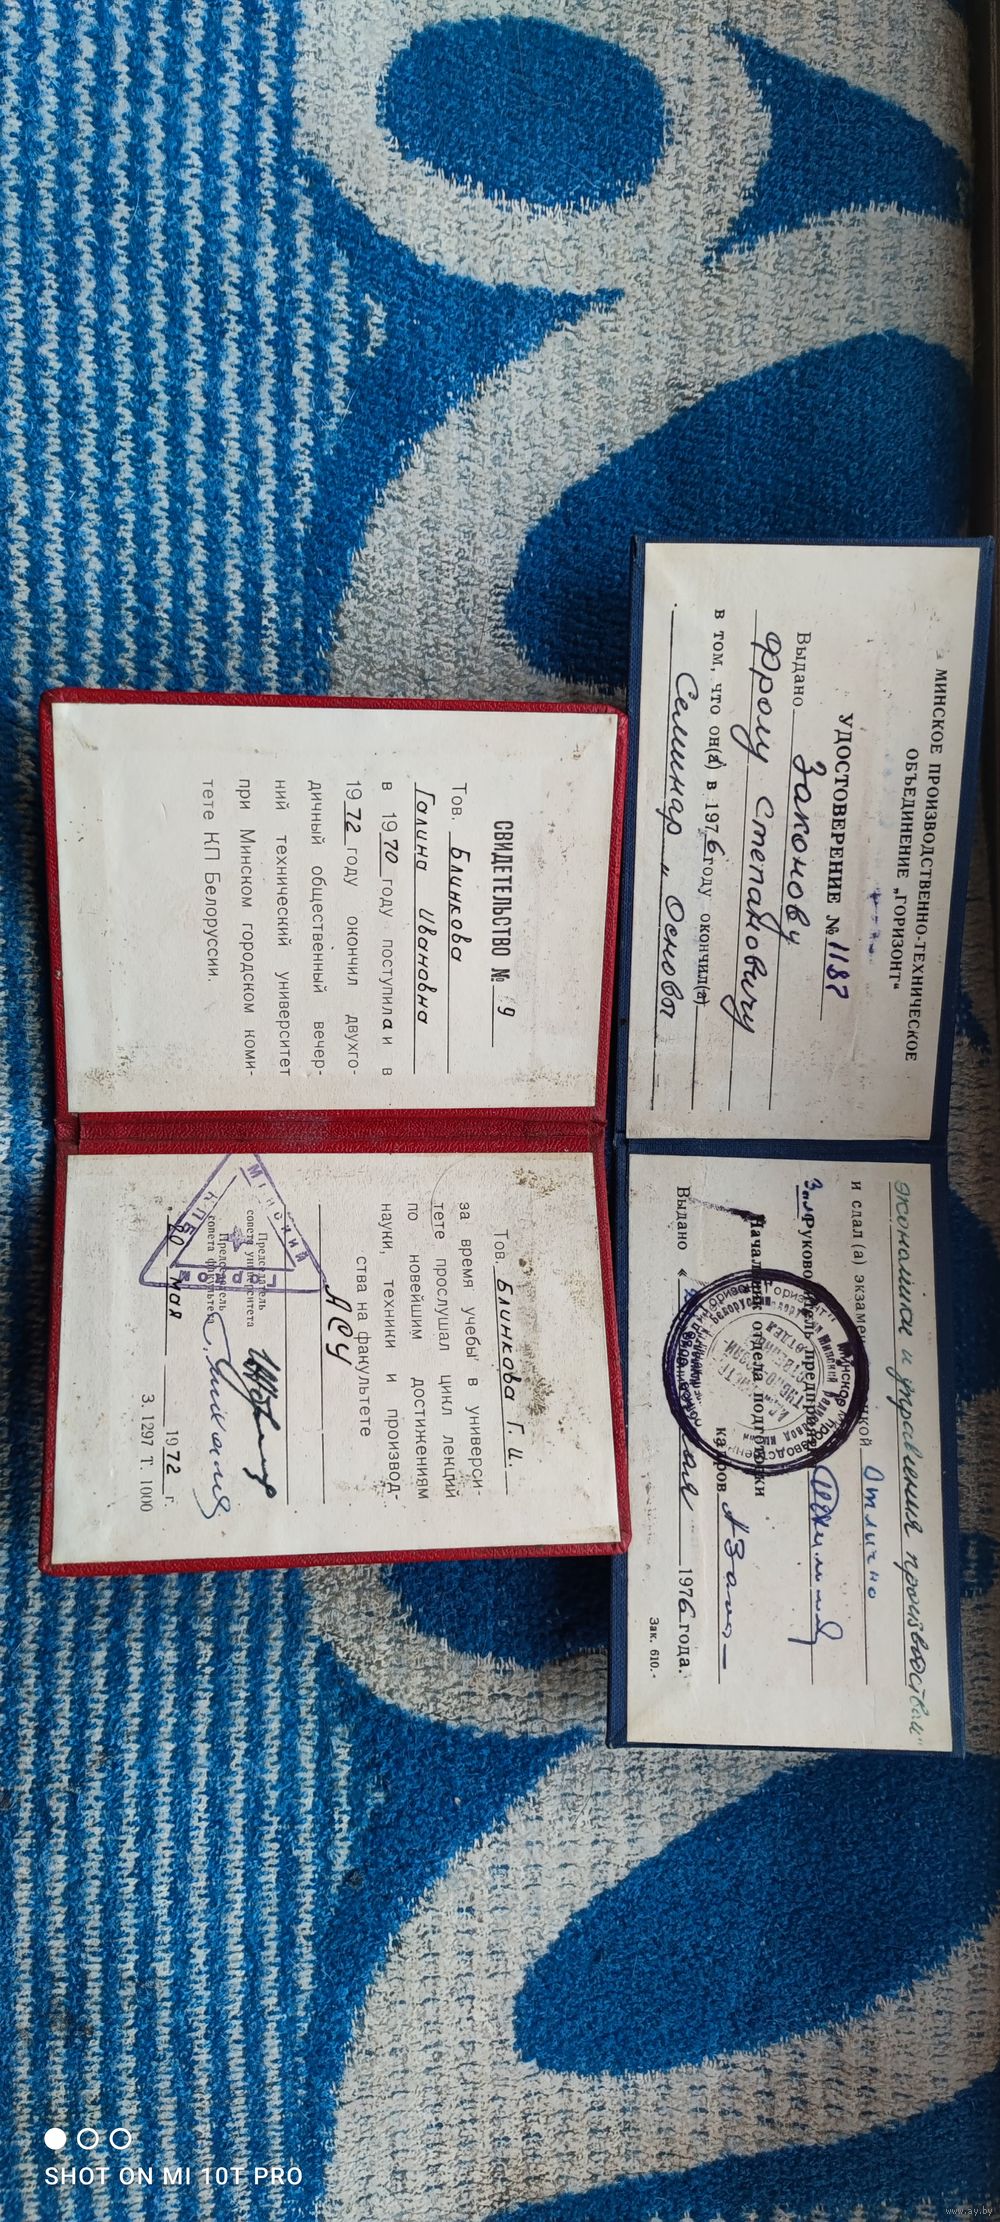 МИНСКОЕ ПРОИЗВОДСТВЕННО-ТЕХНИЧЕСКОЕ
ОБЪЕДИНЕНИЕ „ГОРИЗОНТ“
УДОСТОВЕРЕНИЕ № 1187
Выдано Законову
Фролу Степановичу
в том, что он(а) в 1976 году окончил(а)
Семинар „Основы
экономики и управления производством"
и сдал (а) экзамен оценкой Отлично
Зам Руководитель предприятия
Начальник отдела подготовки
кадров
Выдано « мая 1976 года.
Зак. 610.
СВИДЕТЕЛЬСТВО № 19
Тов. Блинкова
Галина Ивановна
в 1970 году поступила и в
1972 году окончил двухго-
дичный общественный вечер-
ний технический университет
при Минском городском коми-
тете КП Белоруссии.
Тов. Блинкова Г. И.
за время учебы в универси-
тете прослушал цикл лекций
по новейшим достижениям
науки, техники и производ-
ства на факультете
АСУ
Председатель
совета университета
Председатель
совета факультета
МИНСКИЙ
КПБ
30 мая 1972 г.
З. 1297 Т. 1000
SHOT ON MI 10T PRO
www.ay.by